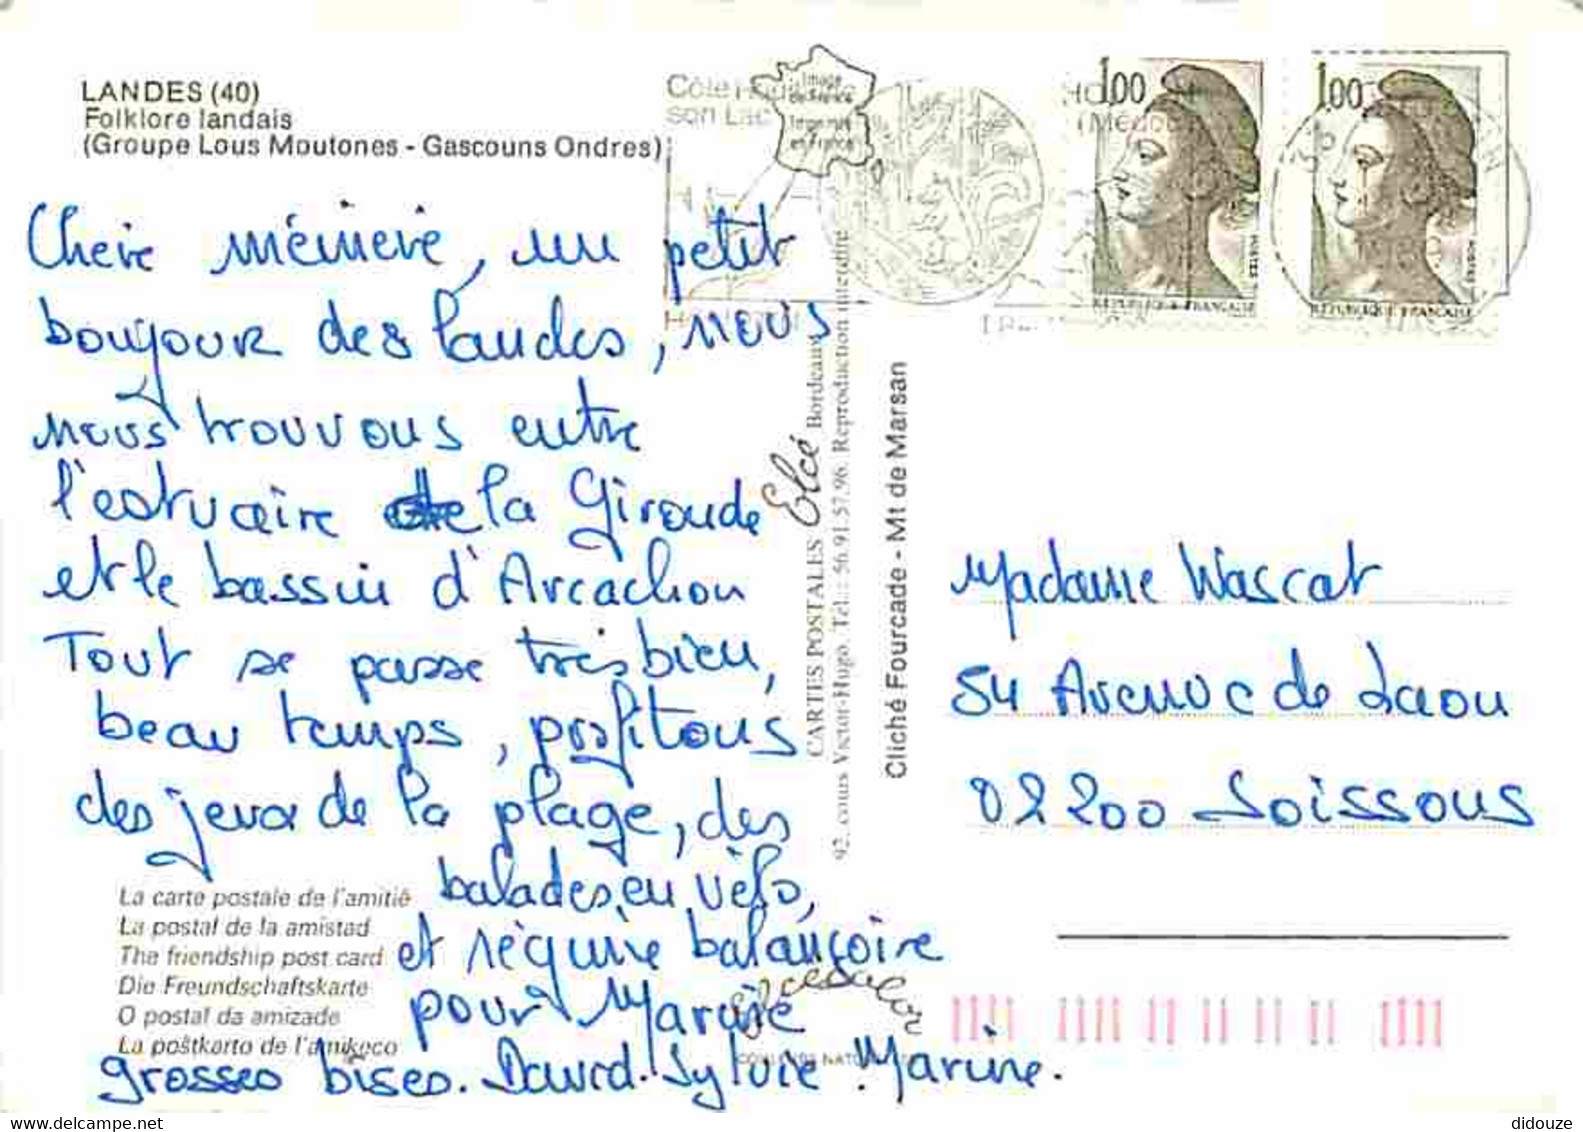 LANDES (40)
Folklore landais
(Groupe Lous Moutones - Gascouns Ondres)
Image de France
Imprimé en France
Côte
son Lac
1.00
1.00
POSTES
POSTES
REPUBLIQUE FRANÇAISE
REPUBLIQUE FRANÇAISE
Chère mémère, un petit
bonjour des landes, nous
nous trouvons entre
l'estuaire de la Gironde
et le bassin d'Arcachon
Tout se passe très bien,
beau temps, profitons
des jeux de la plage, des
balades en vélo,
et séquire balançoire
pour Marine
grosses bises. David. Sylvie. Marine.
La carte postale de l'amitié
La postal de la amistad
The friendship post card
Die Freundschaftskarte
O postal da amizade
La poŝtkarto de l'amikeco
CARTES POSTALES Elcé Bordeaux
92, cours Victor-Hugo. Tél.: 56.91.57.96. Reproduction interdite
Cliché Fourcade - Mt de Marsan
Madame Wascat
54 Avenue de Laon
02200 Soissons
www.delcampe.net
didouze